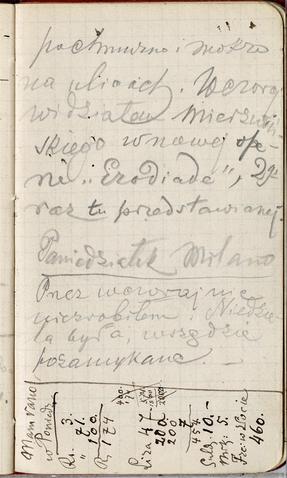 pochmurno i mokro
na ulicach. Wczoraj
widziałam Mierzwiń-
skiego w nowej ope-
rze „Erodiade”, 2gi
raz tu przedstawianej.
Poniedziałek Milano
Przez wczoraj nic
nie zrobiłem. Niedzie-
la była, wszędzie
pozamykane. –
Mam rano
w Poniedz.
R. 3.
" 71.
" 100.
R. 174
200
200
7
454
10.–
5.
460.